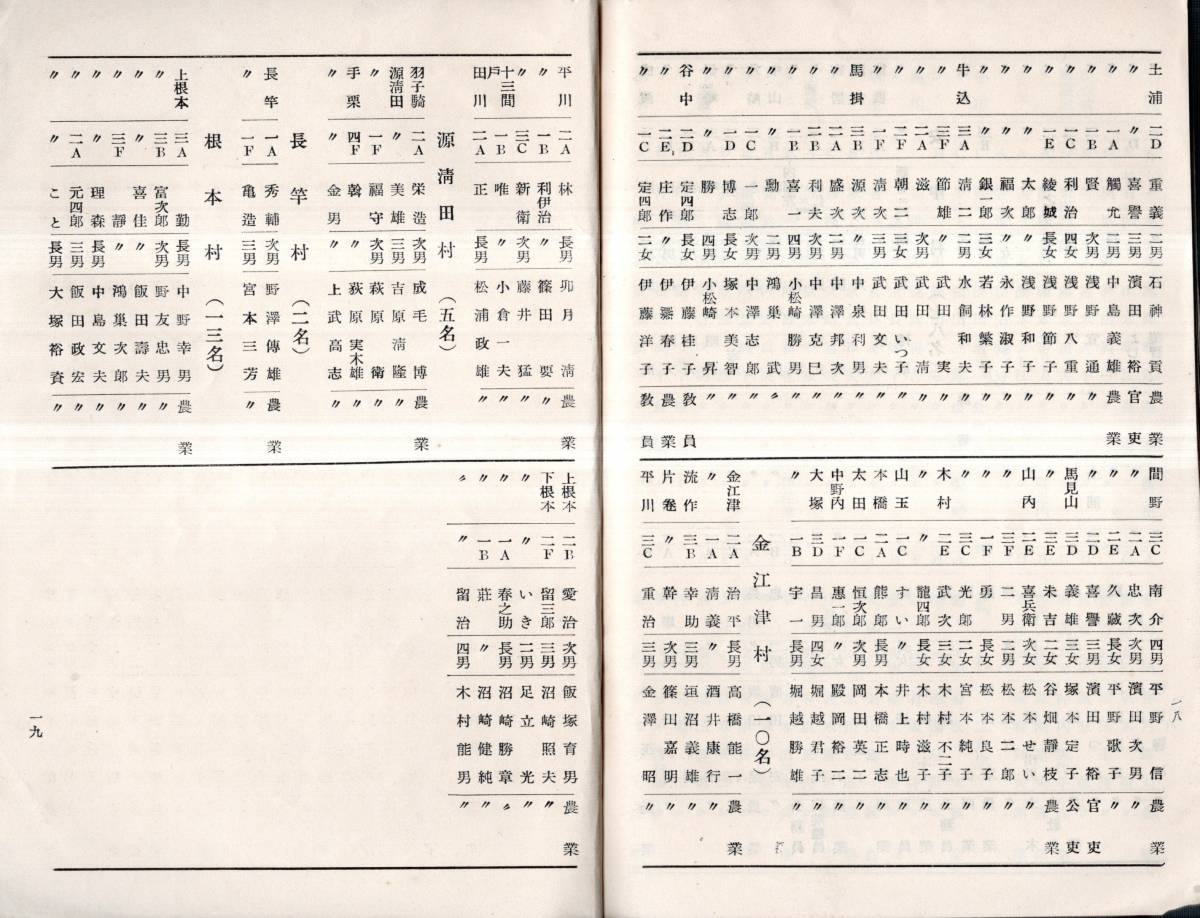 土浦 二D 重義 二男 石神貢 農業
〃 二D 喜譽 三男 濱田裕 官吏
〃 一A 觸尤 二男 中島義雄 農業
〃 二B 賢 次男 浅野通 〃
〃 一C 利治 四女 浅野八重 〃
〃 一E 綾之城 長女 浅野節子 〃
〃 〃 太郎 〃 浅野和子 〃
〃 〃 福次 〃 永作淑子 〃
〃 〃 銀一郎 三女 若林繁子 〃
牛込 三A 清二 二男 水飼和夫 〃
〃 三F 節雄 〃 武田実 〃
〃 二A 滋 次男 武田清 〃
〃 二F 朝二 三女 武田いつ子 〃
〃 一F 清次 三男 武田文夫 〃
馬掛 三B 源次 〃 中泉利男 〃
〃 二A 盛次 二男 中澤邦次 〃
〃 二B 利夫 次男 中澤克巳 〃
〃 一B 喜一 四男 小松崎勝男 〃
〃 〃 勳 二男 鴻巣武 〃
〃 一C 一郎 〃 中澤志郎 〃
〃 一D 博志 長女 塚本美智 〃
〃 〃 勝 四男 小松崎昇 〃
谷中 二D 定四郎 長男 伊藤桂子 教員
〃 二E 庄作 〃 春子 農業
〃 一C 定四郎 二女 伊藤洋子 教員
間野 三C 南介 四男 平野信 農業
〃 二A 忠次 次男 濱田次男 〃
〃 二E 久藏 長女 平野歌子 〃
〃 二D 喜譽 二男 濱田裕 官吏
馬見山 三D 義雄 三女 塚本定子 公吏
〃 三E 未吉 二女 谷畑靜枝 農業
山內 二E 喜兵衛 次女 松本せい 〃
〃 三F 二男 二男 松本二郎 〃
〃 一F 勇 長女 松本良子 〃
〃 三C 光郎 〃 宮本純子 〃
木村 二E 武次 三女 木村不二子 〃
〃 〃 龍四郎 長女 木村滋子 〃
山玉 一C すい 〃 井上時也 〃
本橋 二A 熊郎 長男 本橋正志 〃
太田 一C 恒次郎 次男 岡田英二 〃
中野內 一F 惠一郎 〃 殿岡裕二 〃
大塚 三D 昌男 四女 堀越君子 〃
〃 一B 宇一 長男 堀越勝雄 〃
金江津村 (一〇名)
金江津 二A 治平 長男 高橋能一 農業
〃 一A 清義 〃 酒井康行 〃
流作 三B 幸助 三男 垣沼義雄 〃
片巻 〃 幹幸 次男 篠田嘉明 〃
平川 三C 重治 三男 金澤昭 〃
一八
平川 二A 林 長男 卯月清 農業
〃 一B 利伊治 〃 篠田要 〃
〃 三C 新衛 次男 藤井猛 〃
十三間戶 一B 唯一 〃 小倉一夫 〃
田川 二A 正 長男 松浦政雄 〃
源清田村 (五名)
羽子騎 二A 栄造 次男 威毛博 農業
源清田 〃 美雄 三男 吉原清隆 〃
〃 一F 福守 次男 萩原衛 〃
手栗 四F 幹 〃 荻原実木雄 〃
〃 〃 金男 〃 上武高志 〃
長竿村 (二名)
長竿 一A 秀輔 次男 野澤傳雄 農業
〃 一F 亀造 三男 宮本三芳 〃
根本村 (一三名)
上根本 三A 勤 長男 中野幸男 農業
〃 三B 富次郎 次男 野友忠男 〃
〃 〃 喜佳 〃 飯田壽夫 〃
〃 三F 靜 〃 鴻巣次郎 〃
〃 〃 理森 長男 中島文夫 〃
〃 二A 元四郎 三男 飯田定夫 〃
〃 〃 こと 長男 大塚裕資 〃
上根本 二B 愛治 次男 飯塚育男 農業
下根本 二F 留三郎 三男 沼崎照夫 〃
〃 〃 いき 二男 足立光 〃
〃 一A 春之助 長男 沼崎勝章 〃
〃 一B 莊 〃 沼崎健純 〃
〃 〃 留治 四男 木村能男 〃
一九